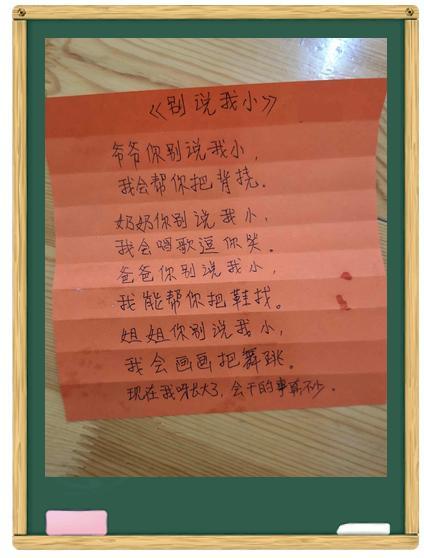 《别说我小》
爷爷你别说我小，
我会帮你把背挠。
奶奶你别说我小，
我会唱歌逗你笑。
爸爸你别说我小，
我能帮你把鞋找。
姐姐你别说我小，
我会画画把舞跳。
现在我呀长大了，会干的事真不少。